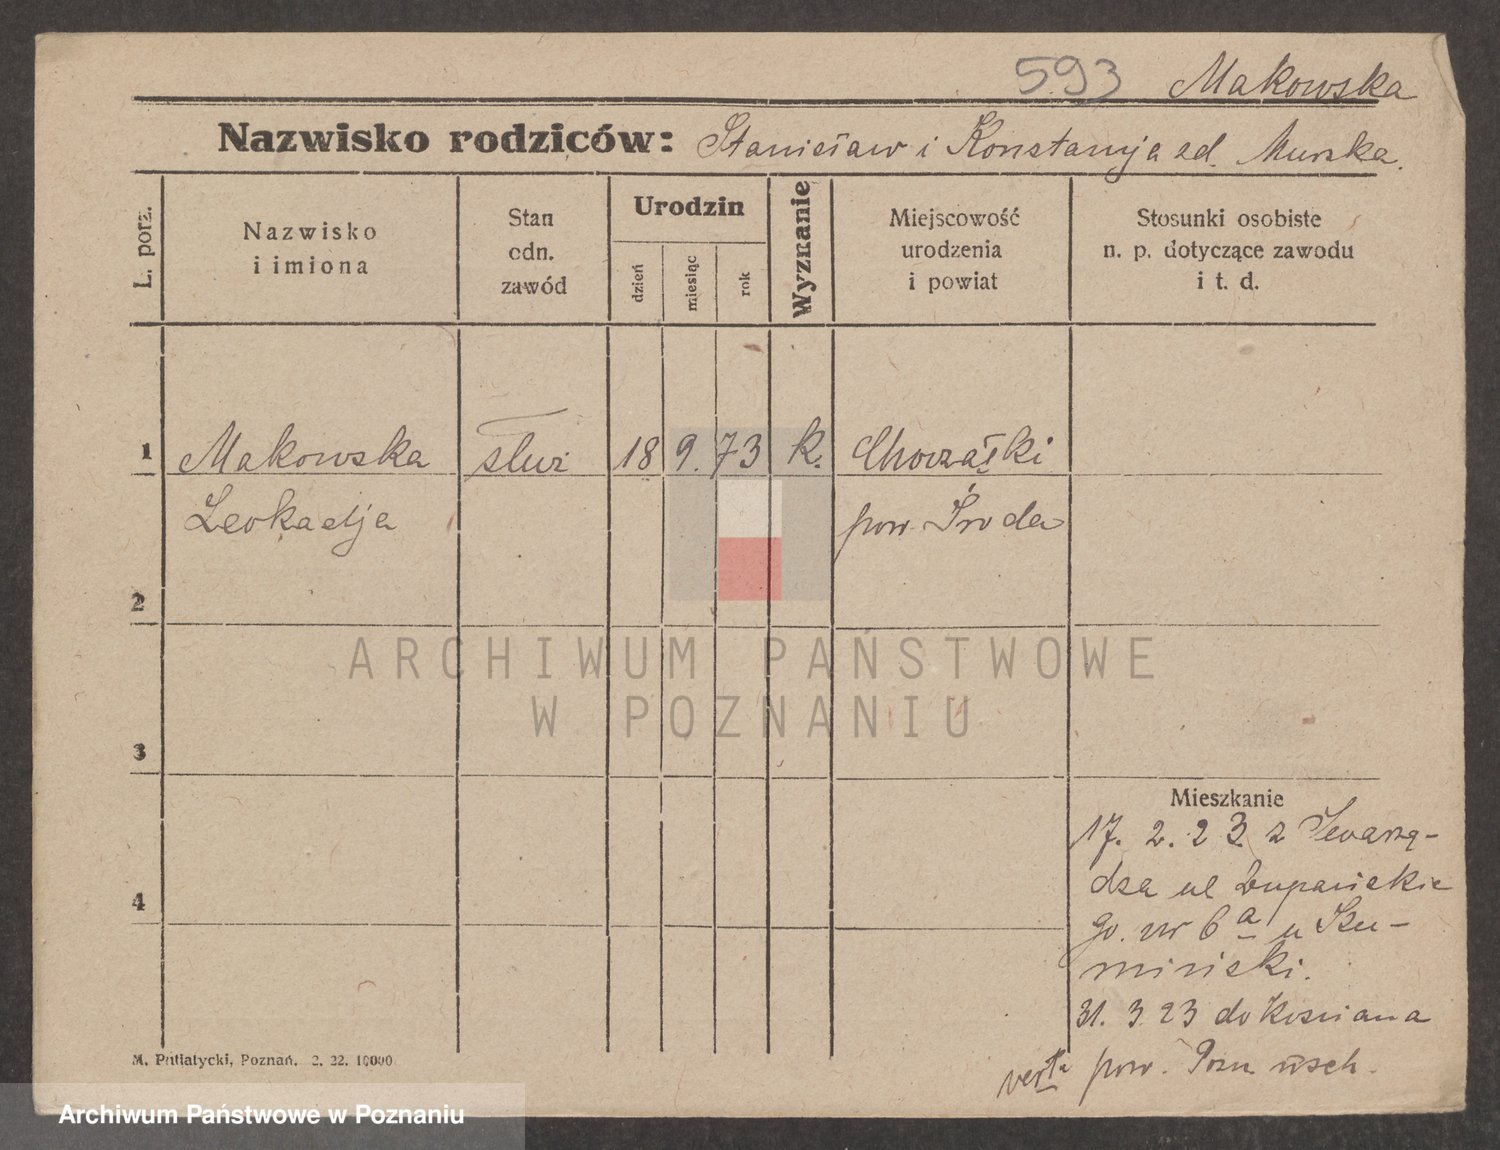 593 Makowska
Nazwisko rodziców: Stanisław i Konstancja zd. Murska.
L. porz.
Nazwisko
i imiona
Stan
odn.
zawód
Urodzin
dzień
miesiąc
rok
Wyznanie
Miejscowość
urodzenia
i powiat
Stosunki osobiste
n. p. dotyczące zawodu
i t. d.
1 Makowska służ 18 9. 73 k. Chorzałki
Leokadja pow. Środa
2
3
4
Mieszkanie
17. 2. 23 z Swarzę-
dza ul Żupańskie
go. nr 6 a u Szu-
miński.
31. 3 23 do
pow. Pozn wsch.
verte
M. Putiatycki, Poznań. 2. 22. 10000
ARCHIWUM PAŃSTWOWE
W POZNANIU
Archiwum Państwowe w Poznaniu